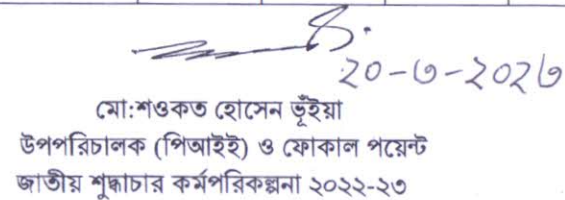 ২০-৩-২০২৩
মো:শওকত হোসেন ভূঁইয়া
উপপরিচালক (পিআইই) ও ফোকাল পয়েন্ট
জাতীয় শুদ্ধাচার কর্মপরিকল্পনা ২০২২-২৩